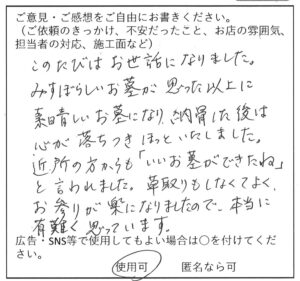 ご意見・ご感想をご自由にお書きください。
（ご依頼のきっかけ、不安だったこと、お店の雰囲気、
担当者の対応、施工面など）
このたびはお世話になりました。
みすぼらしいお墓が思った以上に
素晴しいお墓になり、納骨した後は
心が落ちつきほっといたしました。
近所の方からも「いいお墓ができたね」
と言われました。草取りもしなくてよく、
お参りが楽になりましたので、本当に
有難く思っています。
広告・SNS等で使用してもよい場合は○を付けてくだ
さい。
使用可　匿名なら可